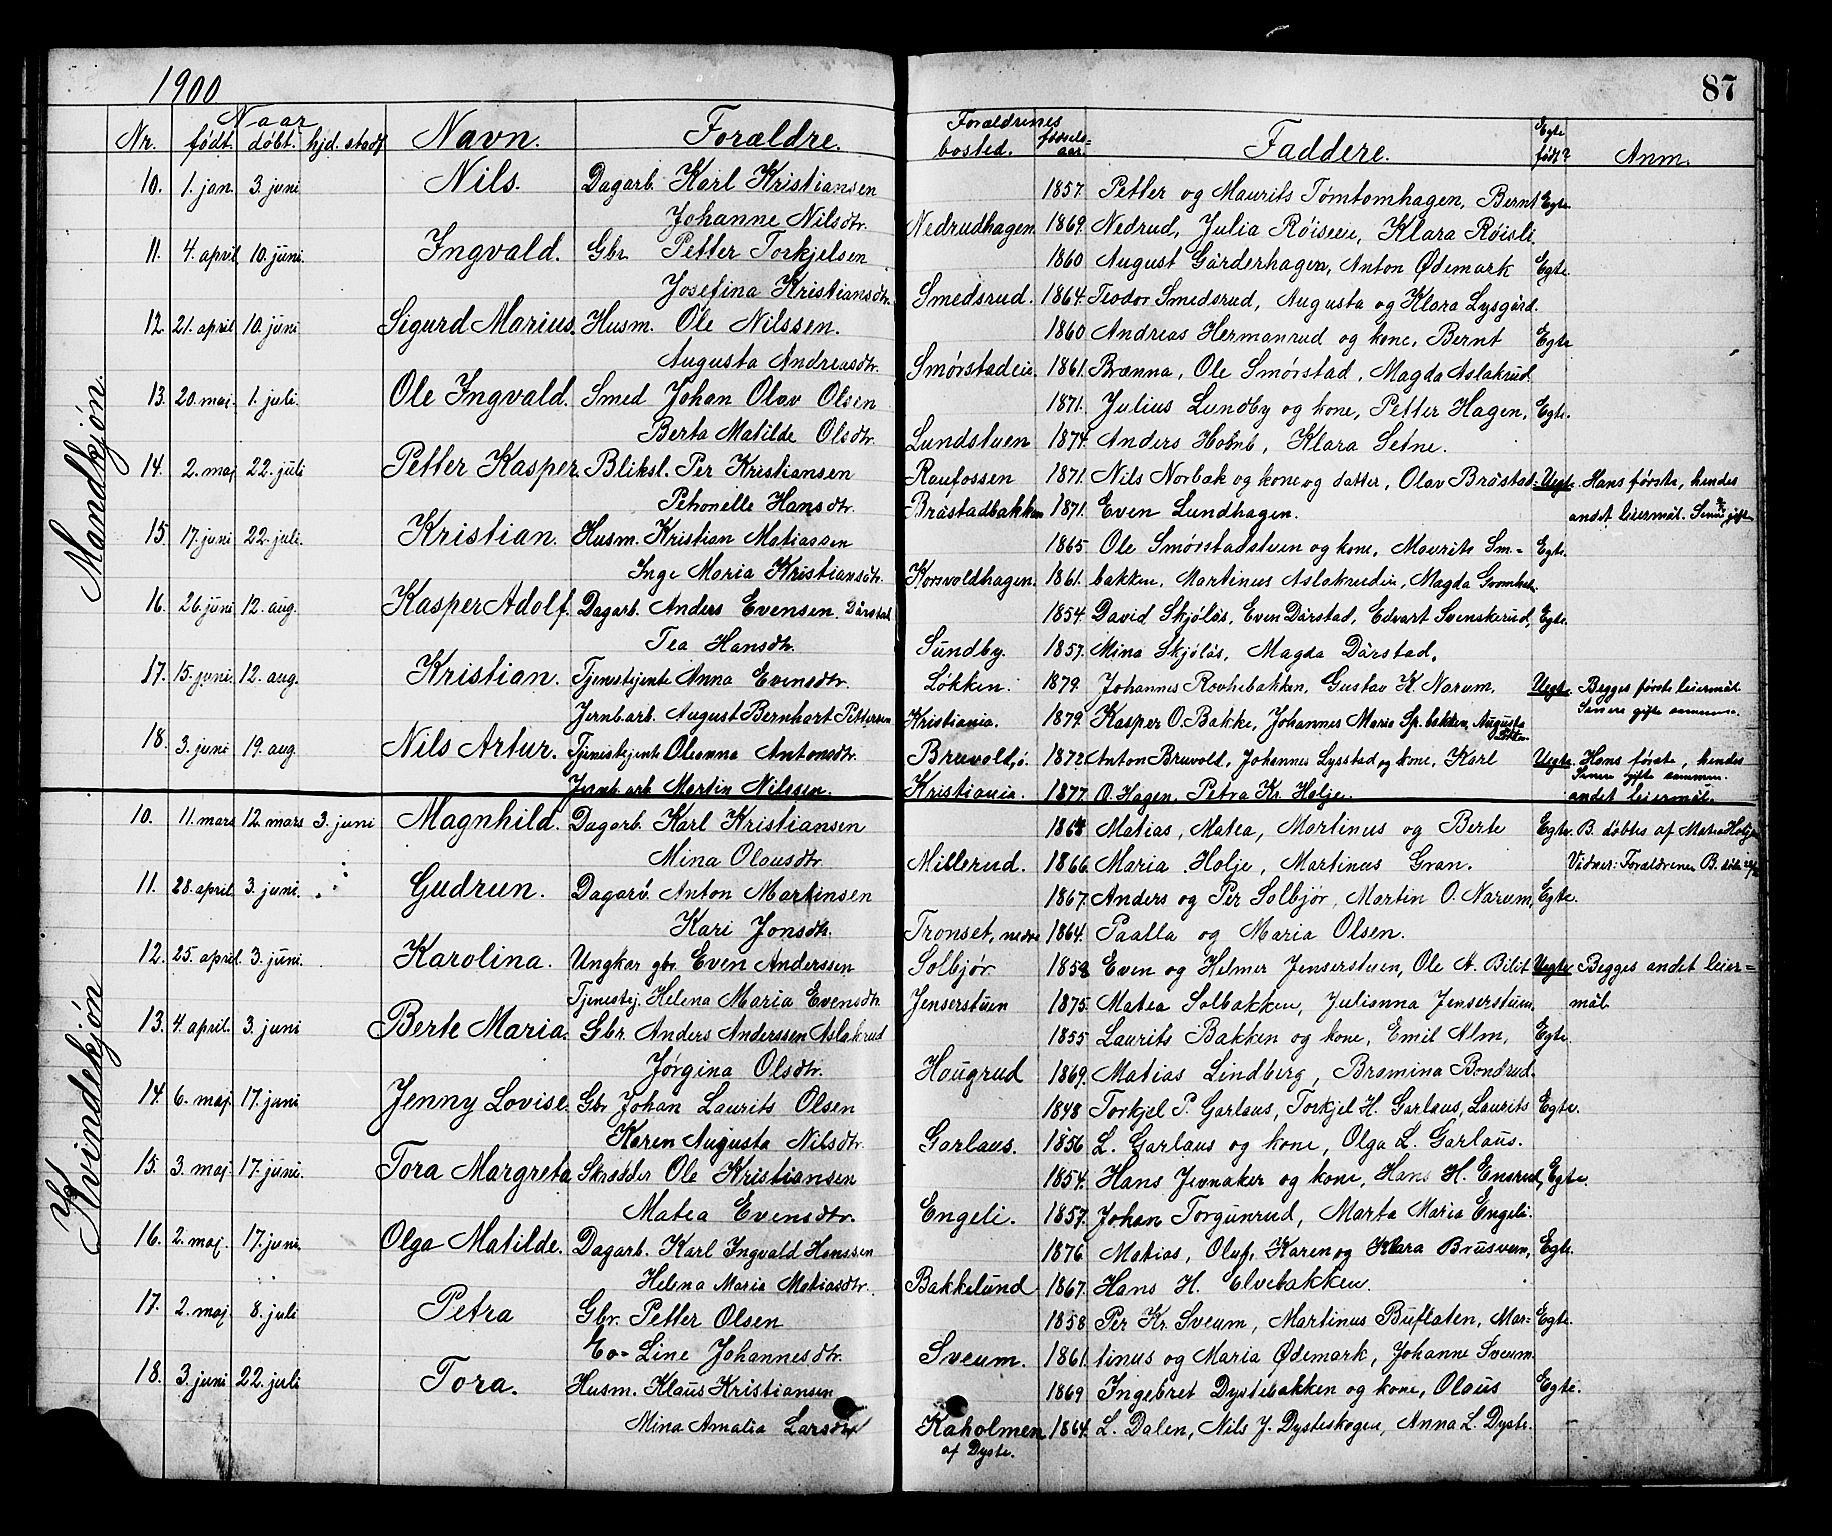 1900
87
Mandkjøn.
Nr. Naar født. døbt. hjd. stadf. Navn. Forældre. Forældrenes bosted. fødselsaar. Faddere. Egte født? Anm.
10. 1. jan. 3. juni Nils. Dagarb. Karl Kristiansen 1857. Petter og Maurits Tømtomhagen, Bernt Egte
Johanne Nilsdtr. Nedrudhagen 1869. Nedrud, Julia Røiseie, Klara Røisli
11. 4. april 10. juni. Ingvald. Gbr. Petter Torkjelsen 1860 August Gårderhagen, Anton Ødemark Egte.
Josefina Kristiansdtr. Smedsrud. 1864. Teodor Smedsrud, Augusta og Klara Lysgård.
12. 21. april 10. juni Sigurd Marius. Husm. Ole Nilssen. 1860 Andreas Hermanrud og kone, Bernt Egte
Augusta Andreasdtr. Smørstadeie 1861. Brænna, Ole Smørstad, Magda Aslakrud.
13. 20. mai. 1. juli. Ole Ingvald. Smed Johan Olav Olsen 1871. Julius Lundby og kone, Petter Hagen, Egte.
Berta Matilde Olsdtr. Lundstuen 1874. Anders Klara Setne.
14. 2. maj 22. juli Petter Kasper. Bliksl. Per Kristiansen Raufossen 1871. Nils Norbak og kone og datter, Olav Bråstad. Uegte. Hans første, hendes
Petronelle Hansdtr. Bråstadbakken 1871. Even Lundhagen. andet leiermål. Senere gift
15. 17. juni 22. juli. Kristian. Husm. Kristian Matiassen 1865 Ole Smørstadstuen og kone, Maurits Sm= Egte.
Inge Maria Kristiansdtr. Korsvoldhagen. 1861. bakken, Martinus Aslakrudeie, Magda
16. 26. juni 12. aug. Kasper Adolf. Dagarb. Anders Evensen. Dårstad 1854 David Skjølås, Even Dårstad, Edvart Svenskerud, Egte.
Tea Hansdtr. Sundby. 1857. Mina Skjølås, Magda Dårstad.
17. 15. juni. 12. aug. Kristian. Tjenestejente Anna Evensdtr. Løkken. 1879. Johannes Rovhebakken, Gustav K. Narum. Uegte. Begges første leiermål
Jernb.arb. August Bernhart Pettersen Kristiania. 1879. Kasper O. Bakke, Johannes Maria Sp. bakken, Augusta Senere gifte sammen.
18. 3. juni 19. aug Nils Artur. Tjenestejente Oleanna Antonsdtr. Bruvold, ø. 1872. Anton Bruvold, Johannes Lysstad og kone, Karl Uegte. Hans første, hendes
Senere gifte sammen.
Jernb.arb. Martin Nilssen. Kristiania. 1877. O. Hagen, Petra Kr. Holje. andet leiermål.
Kvindekjøn
10. 11. mars 12. mars 3. juni Magnhild. Dagarb. Karl Kristiansen 1868 Matias, Matea, Martinus og Berte Egte. B. døbtes af Matea Holje
Mina Olausdtr. Millerud. 1866. Maria Holje, Martinus Gran. Vidner: Forældrene B. døde
11. 28. april. 3. juni. Gudrun. Dagarb. Anton Martinsen 1867. Anders og Per Solbjør, Martin O. Narum, Egte.
Kari Jonsdtr. Tronset, nedre 1864. Paalla og Maria Olsen.
12. 25. april. 3. juni. Karolina. Ungkar gbr. Even Anderssen Solbjør 1858 Even og Helmer Jenserstuen, Ole A. Bilit Uegte Begges andet leier=
Tjenestej. Helena Maria Evensdtr. Jenserstuen 1875. Matea Solbakken, Julianna Jenserstuen. mål.
13. 4. april. 3. juni Berte Maria. Gbr. Anders Anderssen Aslakrud 1855 Laurits Bakken og kone, Emil Alm, Egte.
Jørgina Olsdtr. Hougrud 1869. Matias Lindberg, Bramina Bondrud.
14. 6. maj. 17. juni Jenny Lovise. Gbr Johan Laurits Olsen 1848 Torkjel P. Garlaus, Torkjel H. Garlaus, Laurits Egte.
Karen Augusta Nilsdtr. Garlaus. 1856 L. Garlaus og kone, Olga L. Garlaus.
15. 3. maj. 17. juni. Tora Margreta Skrædder Ole Kristiansen 1854. Hans Jevnaker og kone, Hans H. Ensrud, Egte.
Matea Evensdtr. Engeli. 1857. Johan Torgunrud, Marta Maria Engeli.
16. 2. maj. 17. juni. Olga Matilde. Dagarb. Karl Ingvald Hanssen 1876. Matias, Oluf, Karen og Klara Brusveen, Egte.
Helena Maria Matiasdtr. Bakkelund 1867. Hans H. Elvebakken.
17. 2. maj. 8. juli Petra Gbr. Petter Olsen 1858 Per Kr. Sveum, Martinus Buflaten, Mar= Egte.
Eo-Line Johannesdtr. Sveum. 1861. tinus og Maria Ødemark, Johanne Sveum.
18. 3. juni 22. juli Tora. Husm. Klaus Kristiansen 1869 Ingebret Dystebakken og kone, Olaus Egte.
Mina Amalia Larsdtr Kaholmen 1864. L. Dalen, Nils J. Dysteskogen, Anna L. Dyste.
af Dyste.